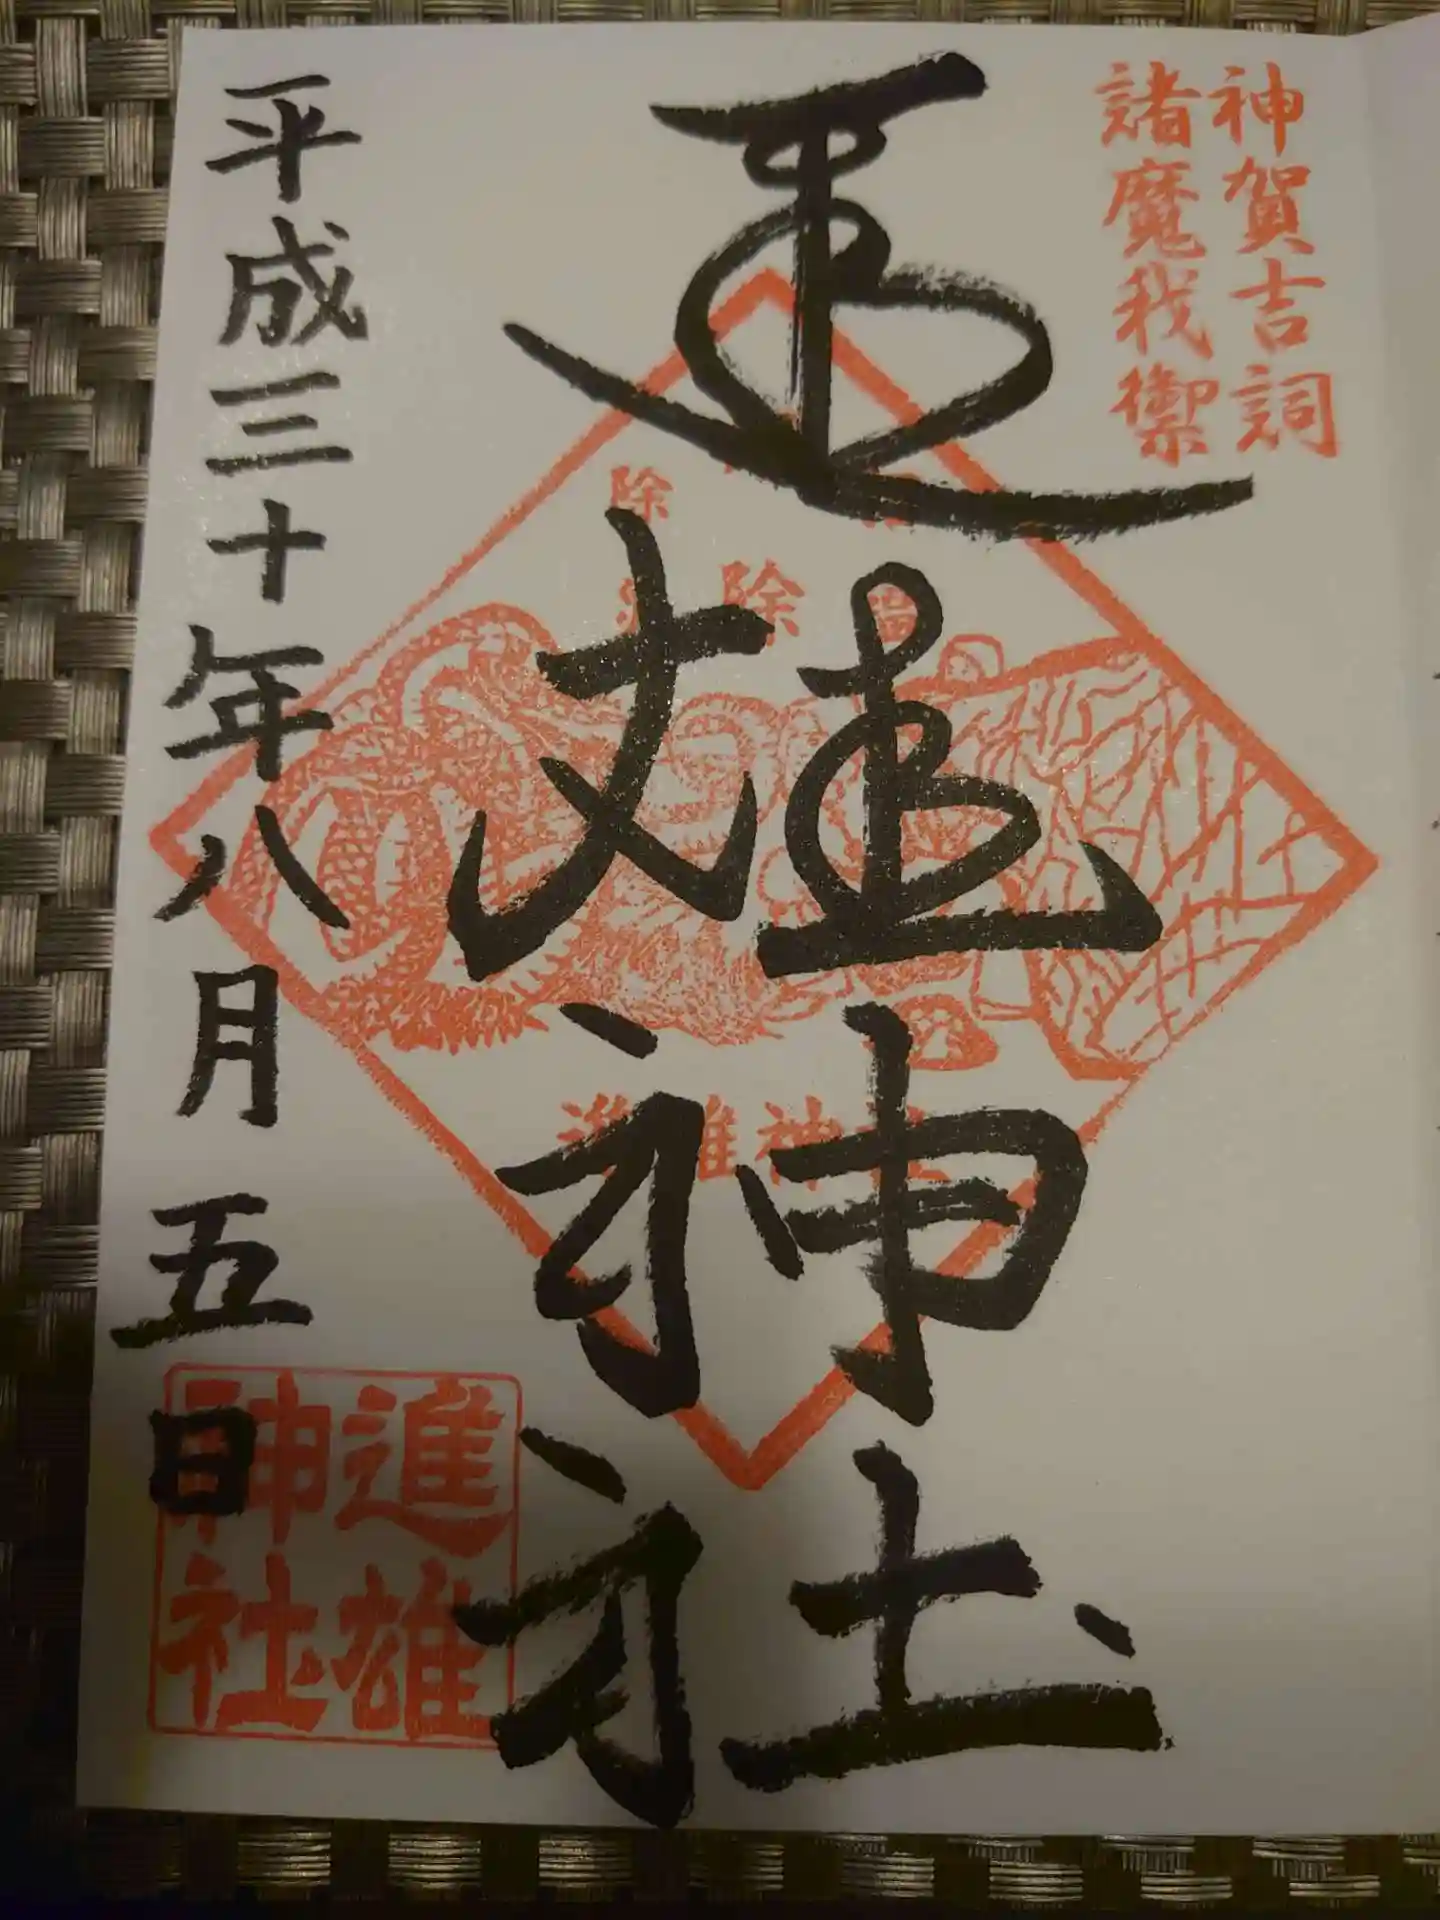 神賀吉詞
諸魔我禦
進雄神社
除
除
進雄神社
平成三十年八月五日
進雄
神社